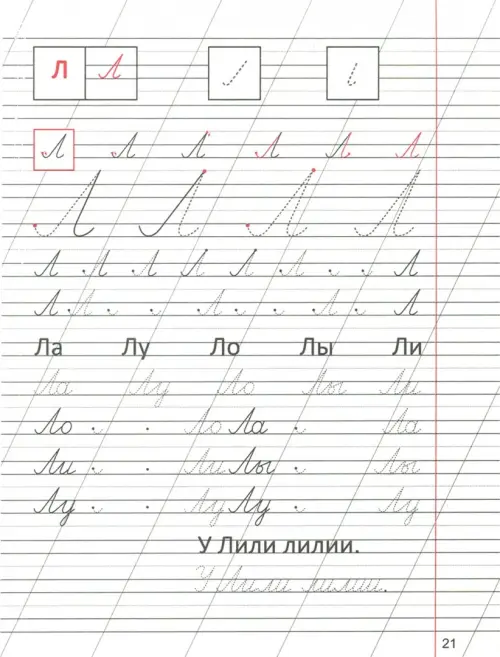 Л Л
Л Л Л Л Л Л
Л Л Л Л
Л Л Л Л Л Л Л
Л Л Л Л Л
Ла Лу Ло Лы Ли
Ла Лу Ло Лы Ли
Ло Ло Ла Ла
Ли Ли Лы Лы
Лу Лу Лу Лу
У Лили лилии.
У Лили лилии.
21